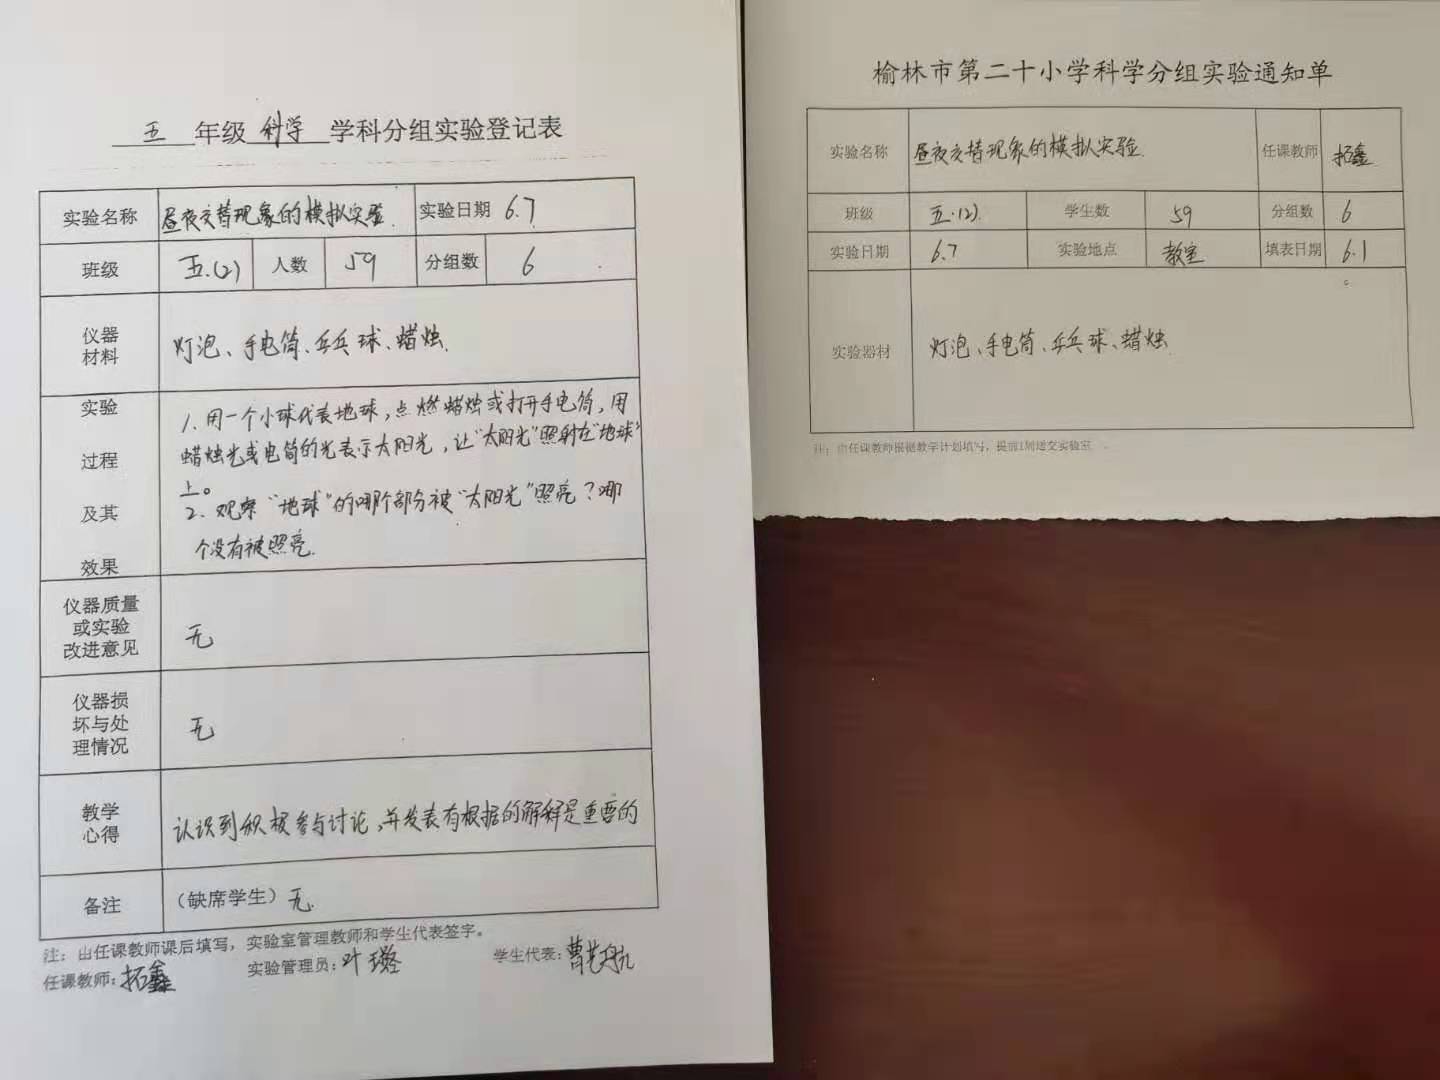 五年级科学学科分组实验登记表
实验名称 昼夜交替现象的模拟实验. 实验日期 6.7
班级 五.(2) 人数 59 分组数 6
仪器
材料
灯泡、手电筒、乒乓球、蜡烛.
实验
过程
及其
效果
1. 用一个小球代表地球,点燃蜡烛或打开手电筒,用
蜡烛光或电筒的光表示太阳光,让“太阳光”照射在“地球”
上。
2. 观察“地球”的哪个部分被“太阳光”照亮?哪
个没有被照亮.
仪器质量
或实验
改进意见
无
仪器损
坏与处
理情况
无
教学
心得
认识到积极参与讨论,并发表有根据的解释是重要的
备注 (缺席学生) 无.
注:由任课教师课后填写,实验室管理教师和学生代表签字。
任课教师: 拓鑫 实验管理员: 叶 学生代表: 曹艺航
榆林市第二十小学科学分组实验通知单
实验名称 昼夜交替现象的模拟实验. 任课教师 拓鑫
班级 五.(2). 学生数 59 分组数 6
实验日期 6.7 实验地点 教室 填表日期 6.1
实验器材 灯泡、手电筒、乒乓球、蜡烛
注:由任课教师根据教学计划填写,提前1周送交实验室